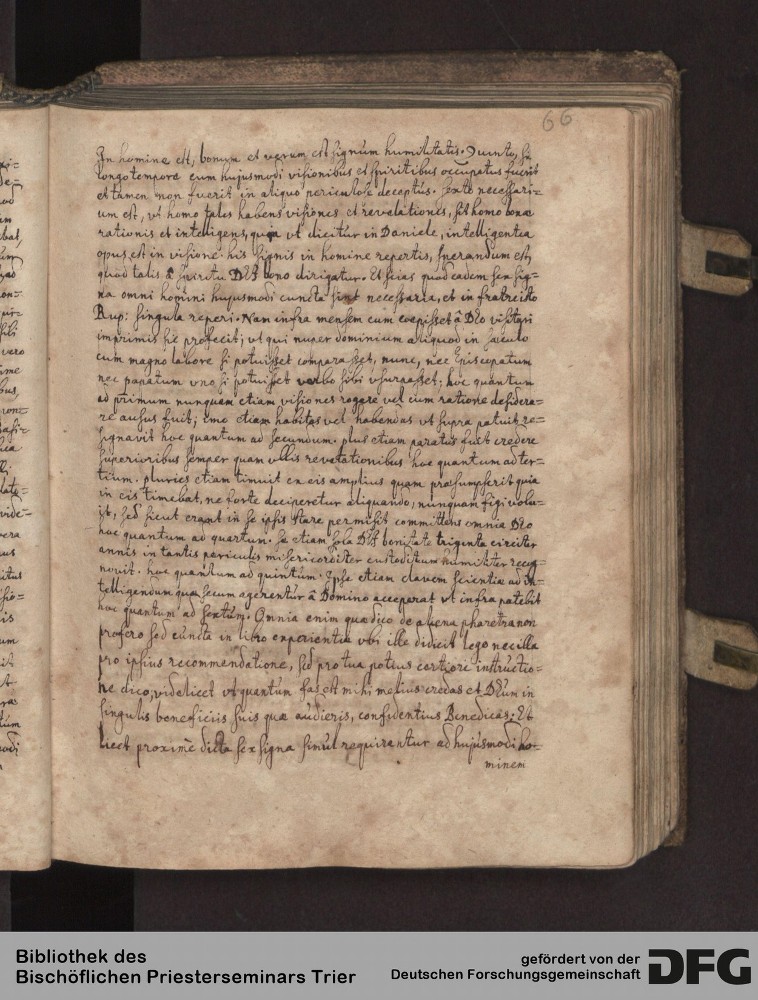 66
In homine est, bonum et verum est signum humilitatis. Quinto, si
longo tempore cum hujusmodi visionibus et spiritibus occupatus fuerit
et tamen non fuerit in aliquo periculose deceptus. Sexto necessari=
um est, vt homo tales habens visiones et revelationes, sit homo bonæ
rationis et intelligens, quia vt dicitur in Daniele, intelligentia
opus est in visione. his signis in homine repertis, sperandum est,
quod talis â spiritu DEI bono dirigatur. Et scias quod eadem sex sig=
na omni homini hujusmodi cuncta sint necessaria, et in fratre isto
Rup: singula reperi. Nam infra mensem cum coepisset â DEO visitari
imprimis sic profecit; vt qui nuper dominium aliquod in sæculo
cum magno labore si potuisset comparasset, nunc, nec Episcopatum
nec papatum vno si potuisset verbo sibi vsurpasset; hoc quantum
ad primum nunquam etiam visiones rogare vel cum ratione desidera=
re ausus fuit; imo etiam habitas vel habendas vt supra patuit re=
signavit hoc quantum ad secundum. plus etiam paratus fuit credere
superioribus semper quam vllis revelationibus hoc quantum ad ter=
tium. pluries etiam timuit ex eis amplius quam præsumpserit quia
in eis timebat, ne forte deciperetur aliquando, nunquam figi volu=
it, sed sicut erant in se ipsis stare permisit committens omnia DEO
hoc quantum ad quartum. se etiam sola DEI bonitate triginta circiter
annis in tantis periculis misericorditer custoditum humiliter recog=
novit. hoc quantum ad quintum. Ipse etiam clavem scientiæ ad in=
telligendum quæ secum agerentur â Domino acceperat vt infra patebit
hoc quantum ad sextum. Omnia enim quæ dico de aliena pharetra non
profero sed cuncta in libro experientiæ vbi ille didicit lego nec illa
pro ipsius recommendatione, sed pro tua potius certiore instructio=
ne dico, videlicet vt quantum fas est mihi melius credas et DEUM in
singulis beneficiis suis quæ audieris, confidentius Benedicas. Et
licet proxime dicta sex signa simul requirantur ad hujusmodi ho=
minem
Bibliothek des
Bischöflichen Priesterseminars Trier
gefördert von der
Deutschen Forschungsgemeinschaft
DFG